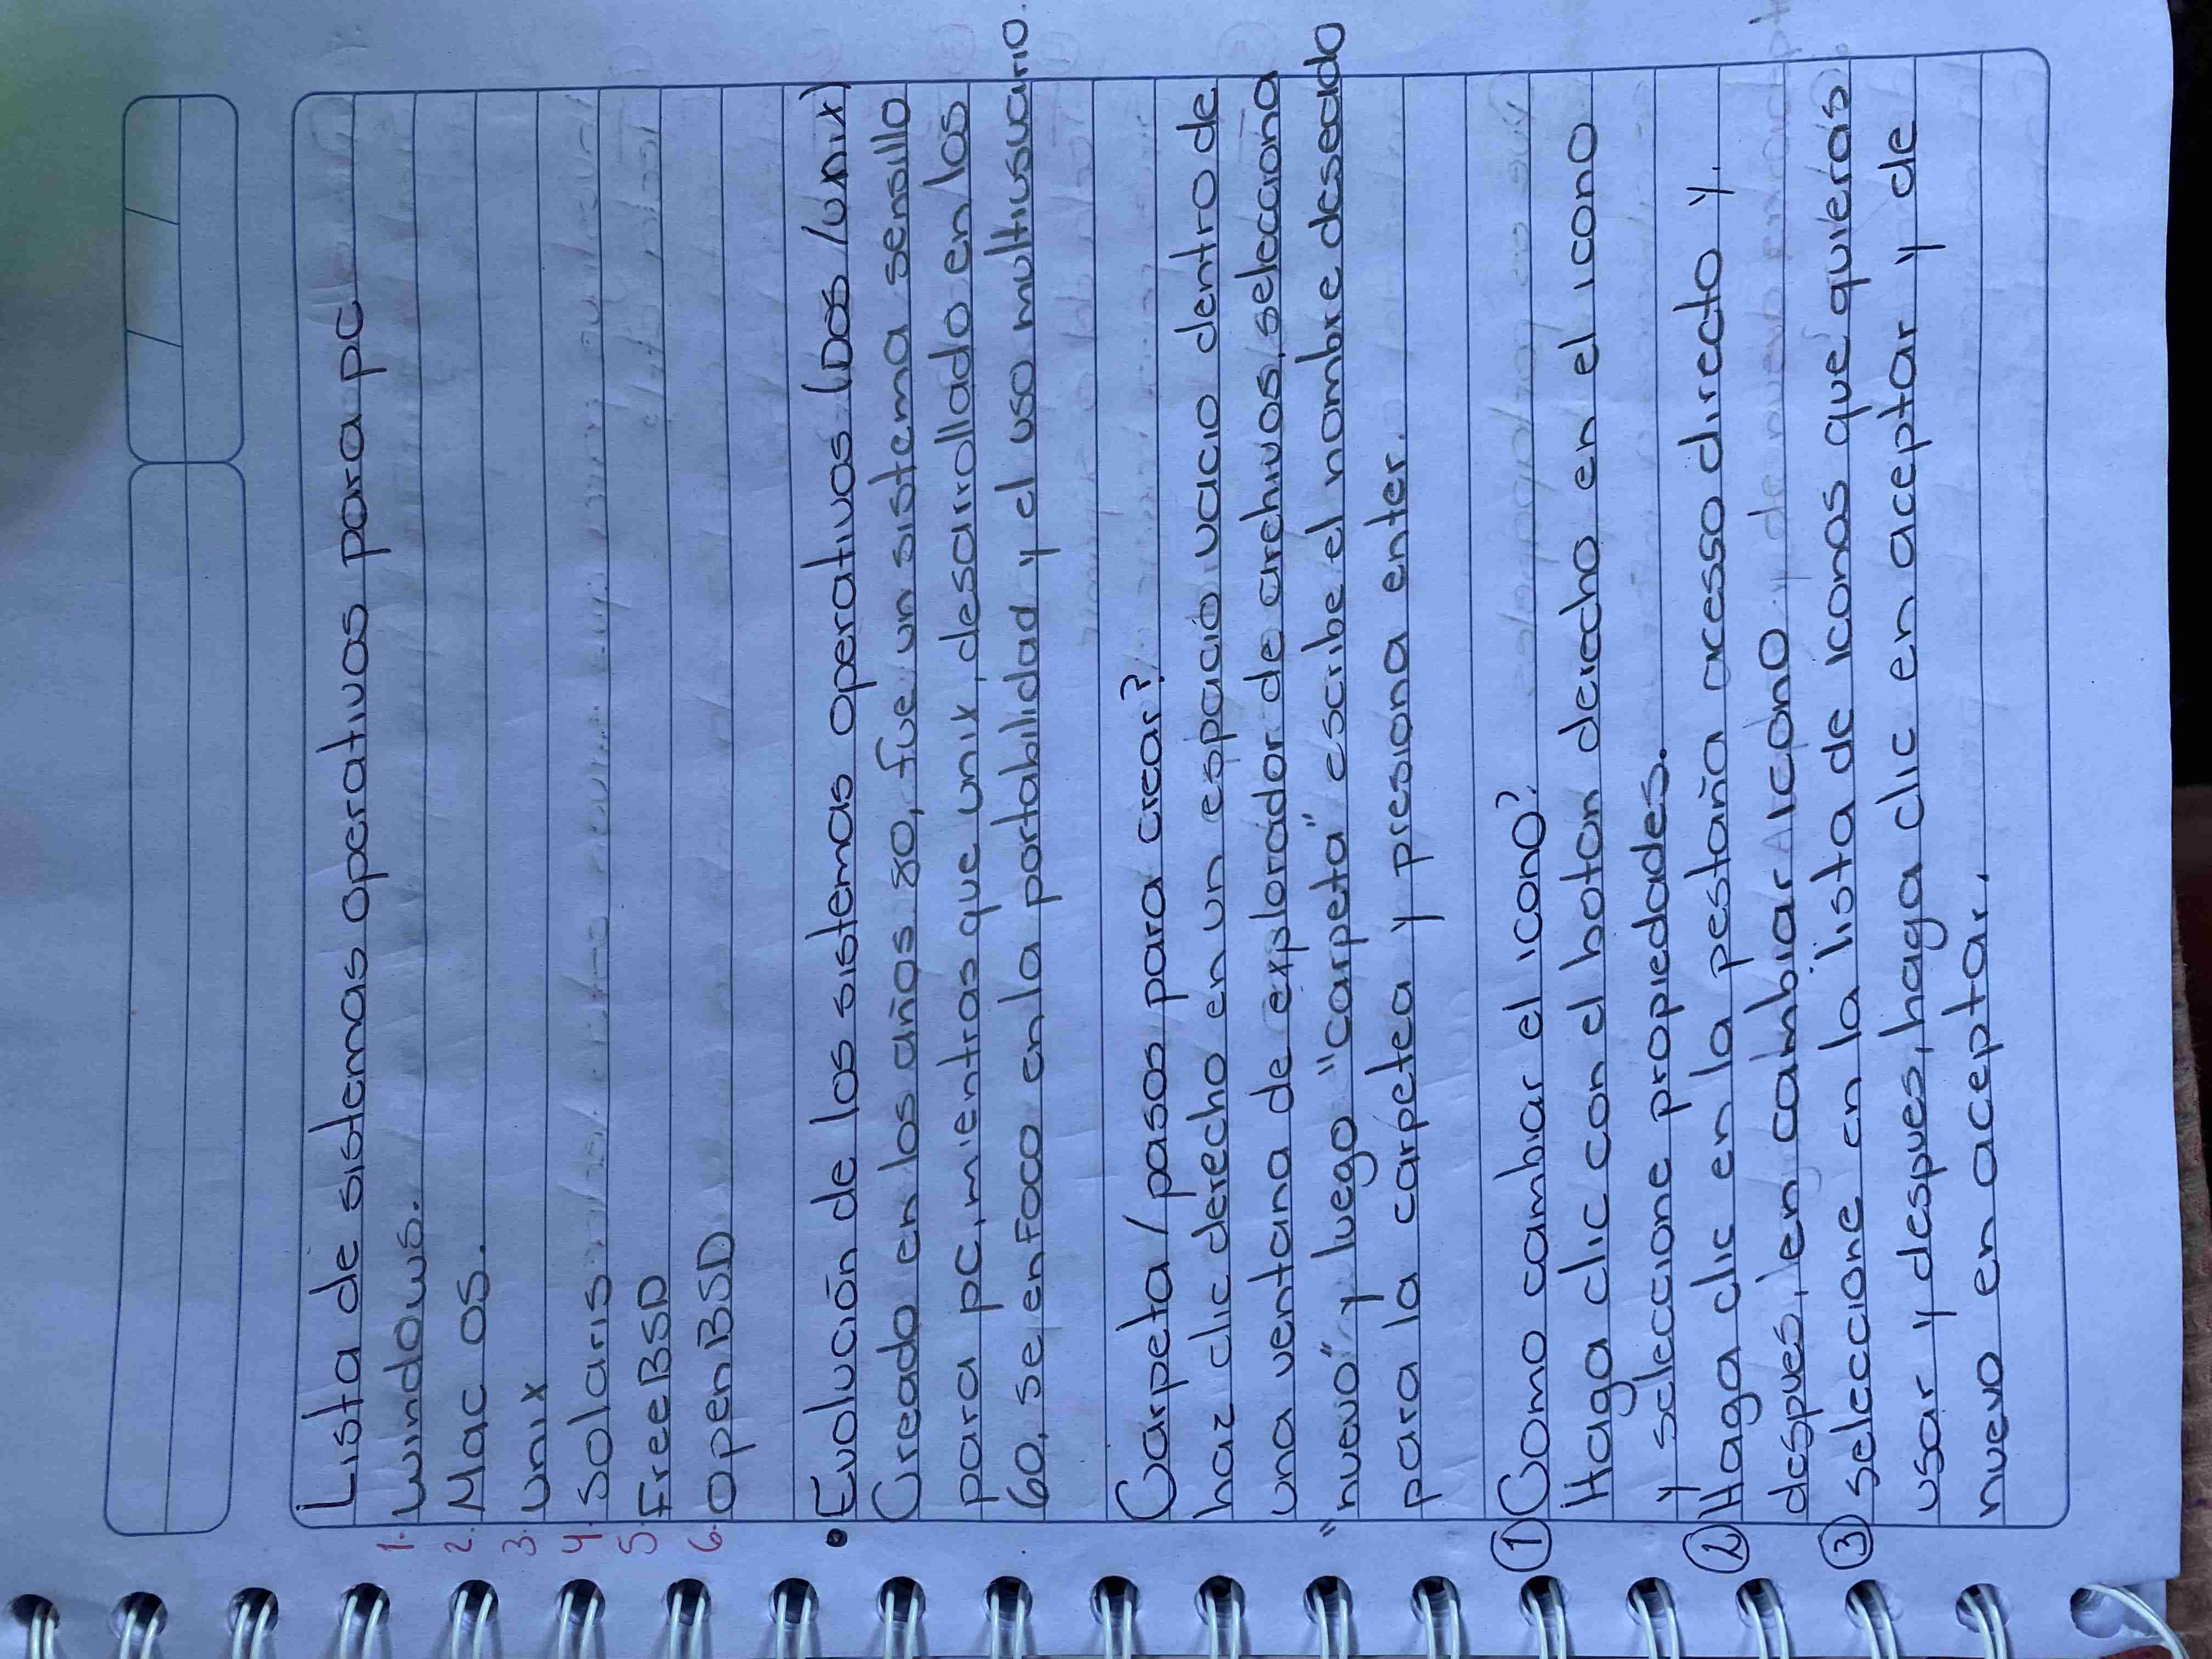 Lista de sistemas operativos para pc
1. windows.
2. Mac os.
3. unix
4. solaris
5. FreeBSD
6. OpenBSD
• Evolución de los sistemas operativos (Dos /unix)
Creado en los años 80, fue un sistema sensillo
para pc, mientras que unix, desarrollado en los
60, se enfoco en la portabilidad y el uso multiusucario.
Carpeta / pasos para crear?
haz clic derecho en un espacio vacio dentro de
una ventana de explorador de archivos, selecciona
"nuevo" y luego "carpeta" escribe el nombre deseado
para la carpetea y presiona enter.
① Como cambiar el icono?
Haga clic con el boton derecho en el icono
y seleccione propiedades.
② Haga clic en la pestaña acesso directo y
despues, en cambiar icono
③ seleccione en la lista de iconos que quieras
usar y despues, haga clic en aceptar y de
nuevo en aceptar.